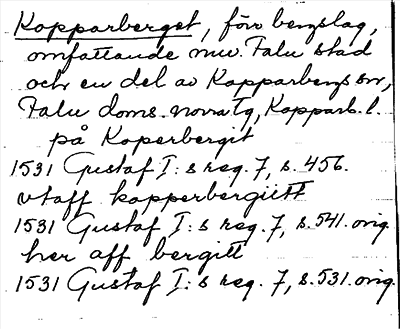 Kopparberget, förr bergslag,
omfattande nuv. Falu stad
och en del av Kopparbergs sn,
Falu doms. norra tg, Kopparb. l.
på Koperbergit
1531 Gustaf I:s reg. 7, s. 456.
vtaff kopperbergiitt
1531 Gustaf I:s reg. 7, s. 541. orig.
her aff bergitt
1531 Gustaf I:s reg. 7, s. 531. orig.